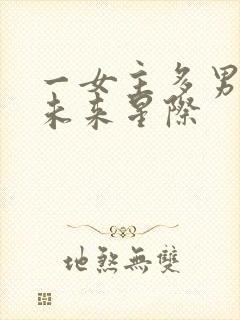 一女主多男
未来星际
地煞無雙